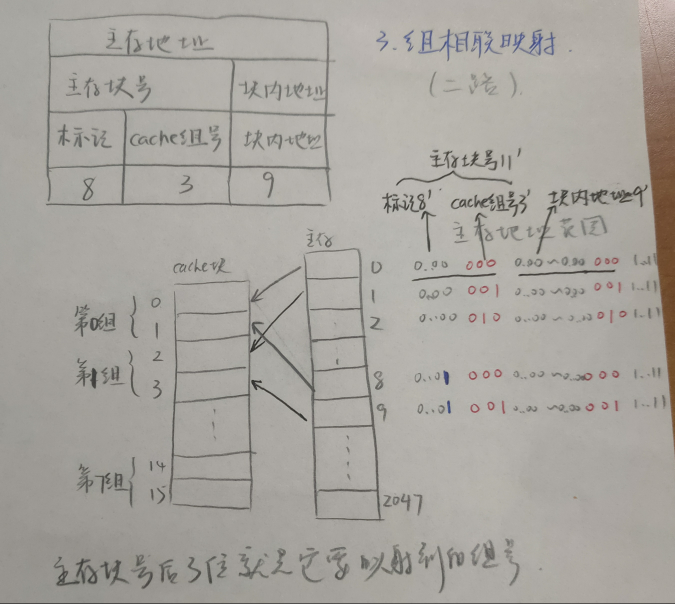 主存地址
主存块号 块内地址
标记 cache组号 块内地址
8 3 9
3.组相联映射.
(二路).
主存块号11'
标记8' cache组号3' 块内地址9'
主存地址范围
cache块
主存
0 0.00 000 0.00~0.00 000 1..11
1 0.00 001 0..00~0.00 001 1..11
2 0.00 010 0..00~0..00 010 1..11
8 0..01 000 0.00~0.00 000 1..11
9 0..01 001 0.00~0.00 001 1..11
2047
第0组 0
1
第1组 2
3
第7组 14
15
主存块号后3位就是它要映射到的组号.